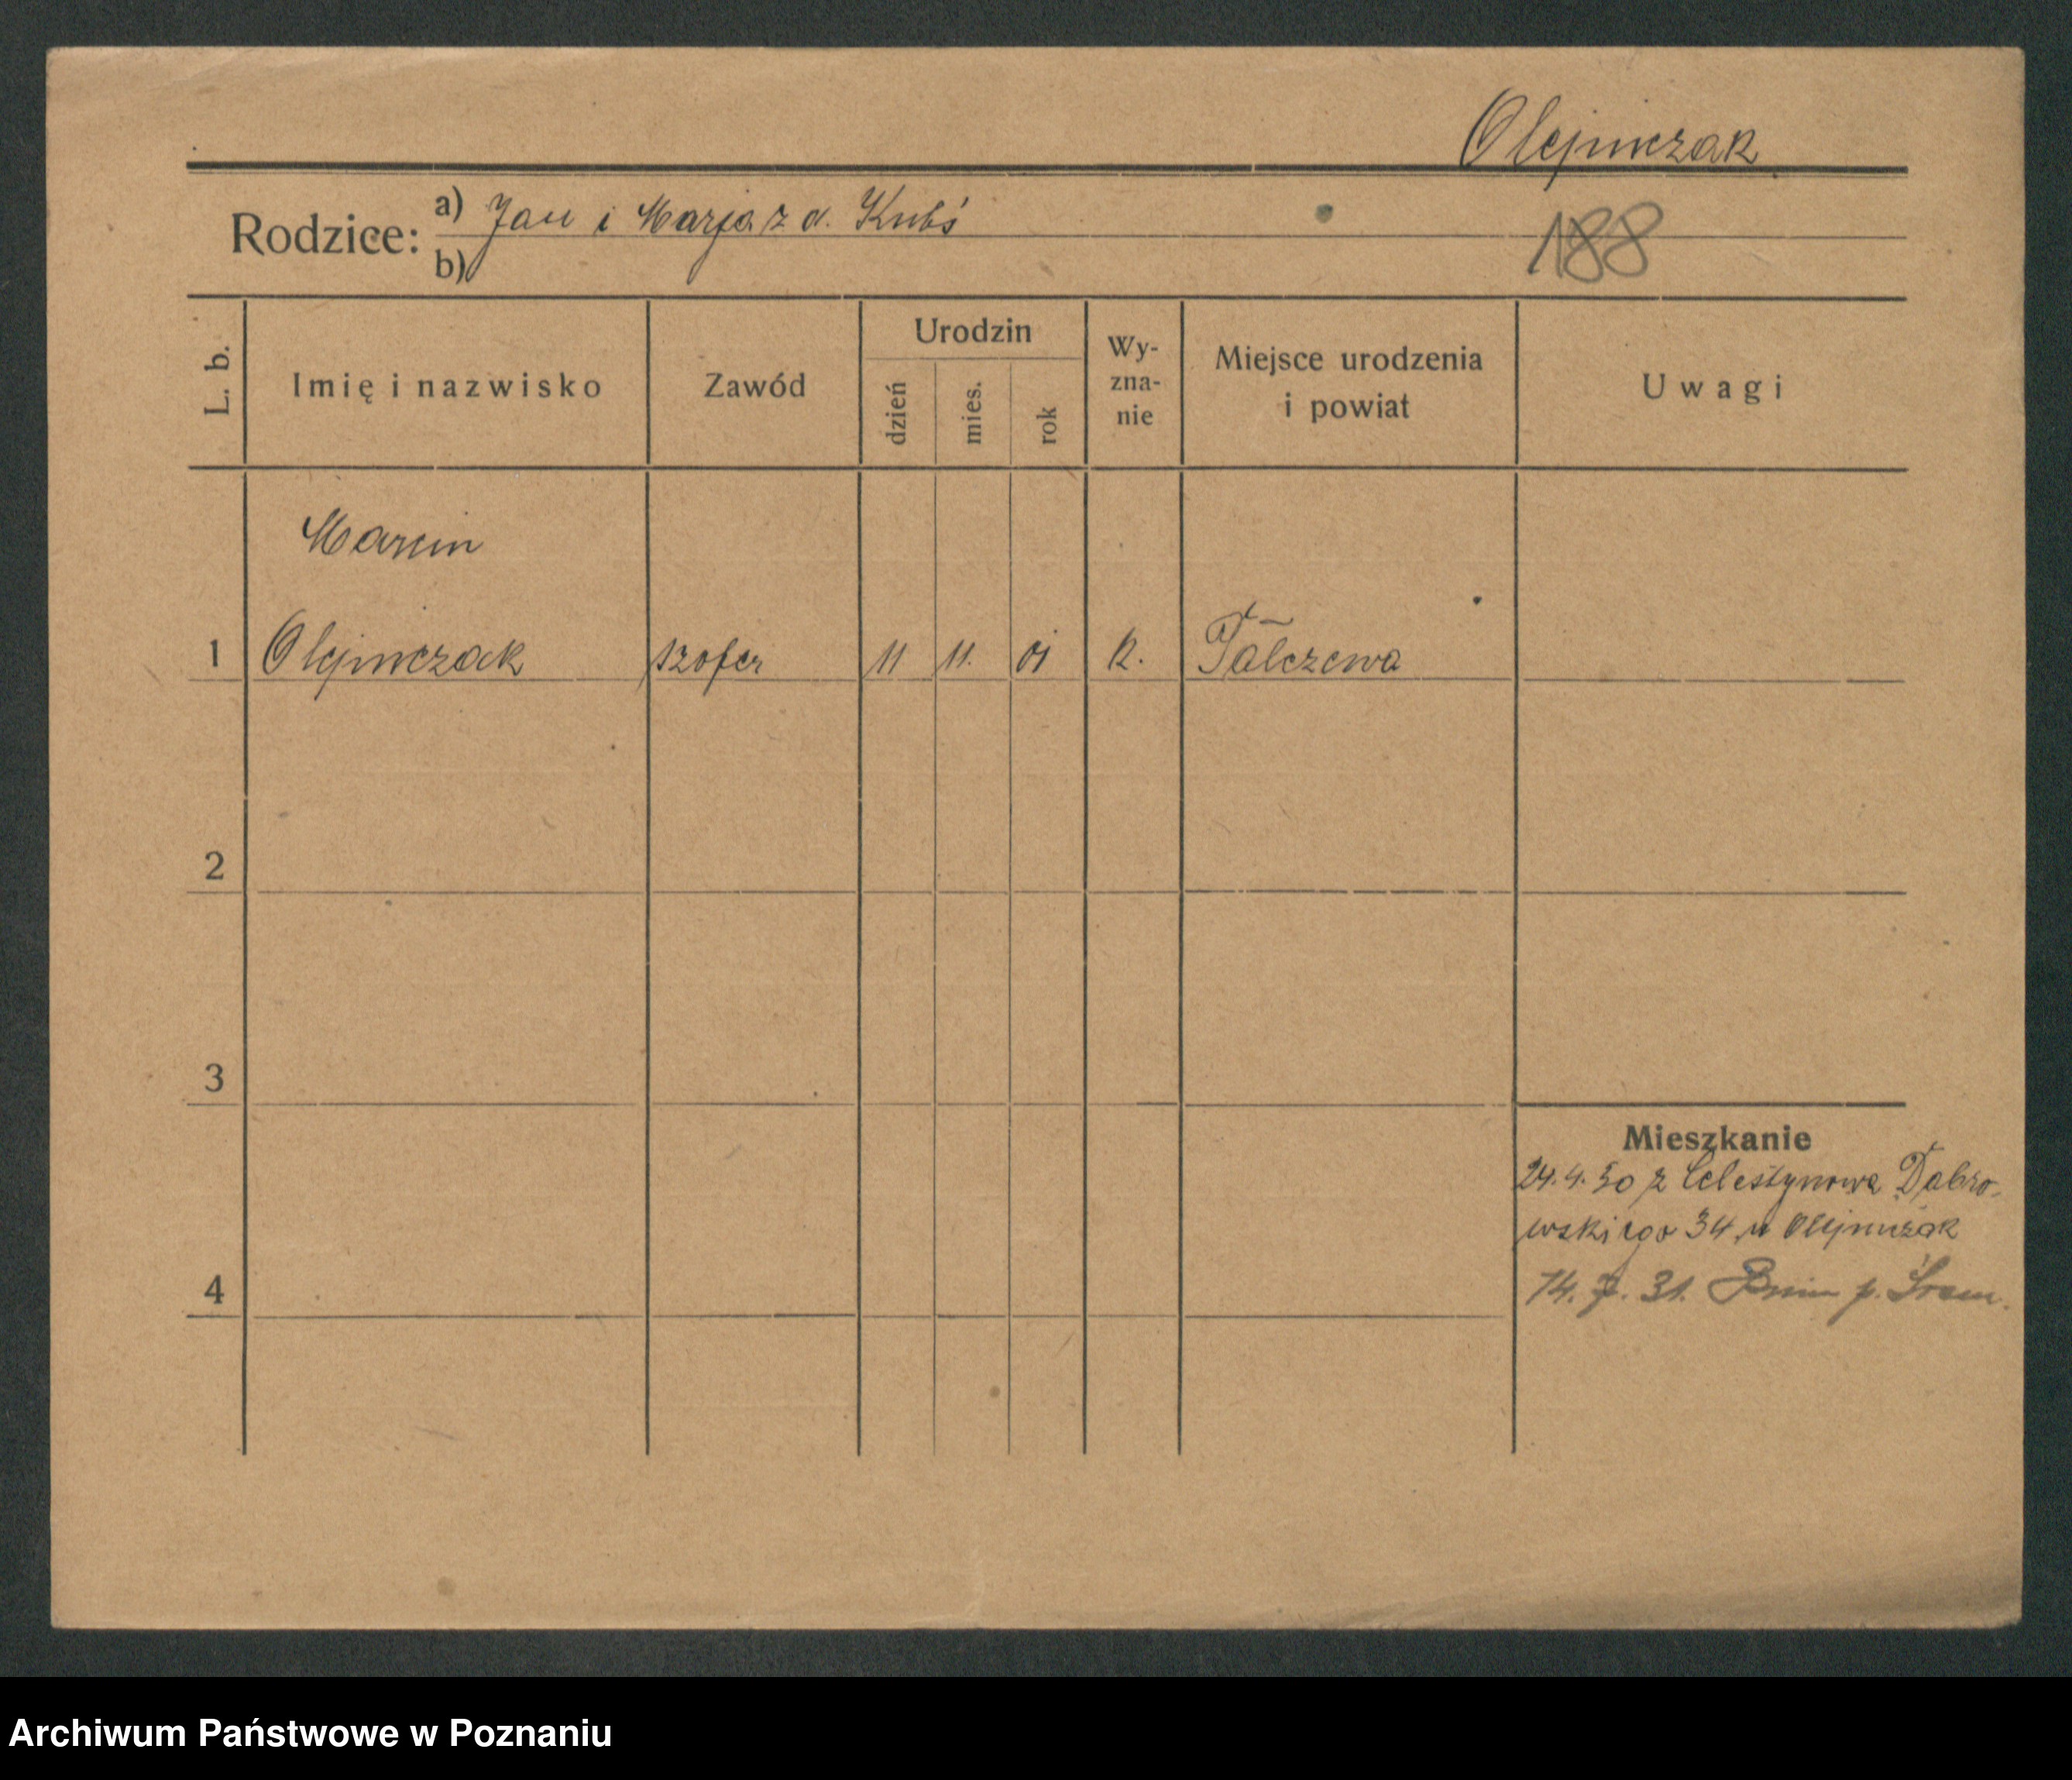 Olejniczak
Rodzice: a) Jan i Marja z d. Kubś
b)
188
L. b.
Imię i nazwisko
Zawód
Urodzin
dzień
mies.
rok
Wy-
zna-
nie
Miejsce urodzenia
i powiat
Uwagi
Marcin
1 Olejniczak szofer 11 11. 01 k. Tałczewa
2
3
Mieszkanie
24.4.30 z Celestynowa Dąbro-
wskiego 34 u Olejniczak
4
14. 7. 31. Bnin p. Śrem.
Archiwum Państwowe w Poznaniu